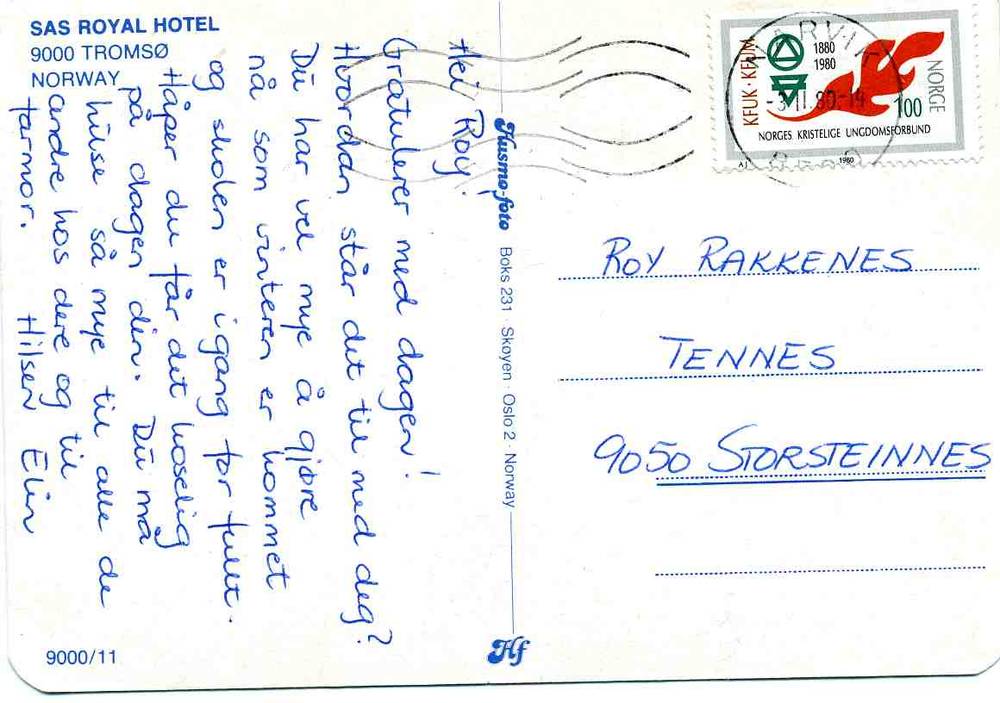 SAS ROYAL HOTEL
9000 TROMSØ
NORWAY
Hei Roy!
Gratulerer med dagen!
Hvordan står det til med deg?
Du har vel mye å gjøre
nå som vinteren er kommet
og skolen er igang for fullt.
Håper du får det koselig
på dagen din. Du må
huse så mye til alle de
andre hos dere og til
farmor. Hilsen Elin
9000/11
Husmo-foto Boks 231 · Skøyen · Oslo 2 · Norway
Hf
KFUK · KFUM
1880
1980
NORGE
100
NORGES KRISTELIGE UNGDOMSFORBUND
AJ 1980
NARVIK
-3.11.80-14
ROY RAKKENES
TENNES
9050 STORSTEINNES